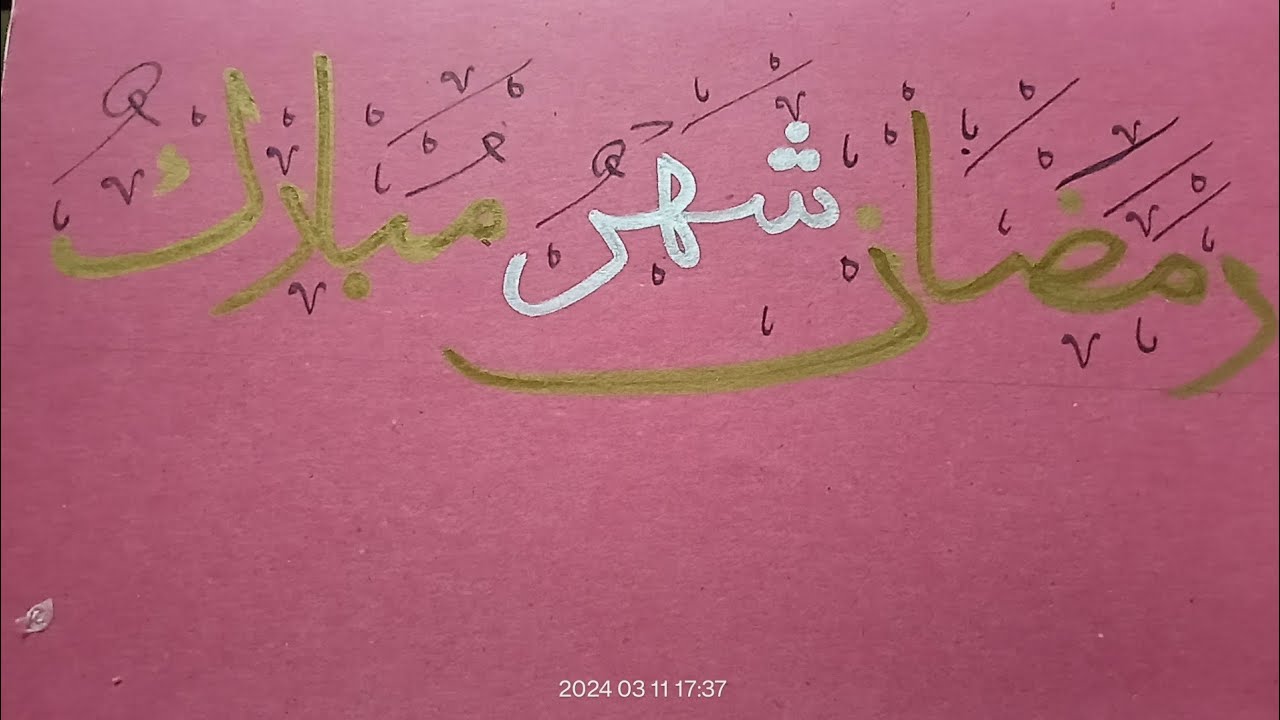 رمضان شهر مبارك
2024 03 11 17:37